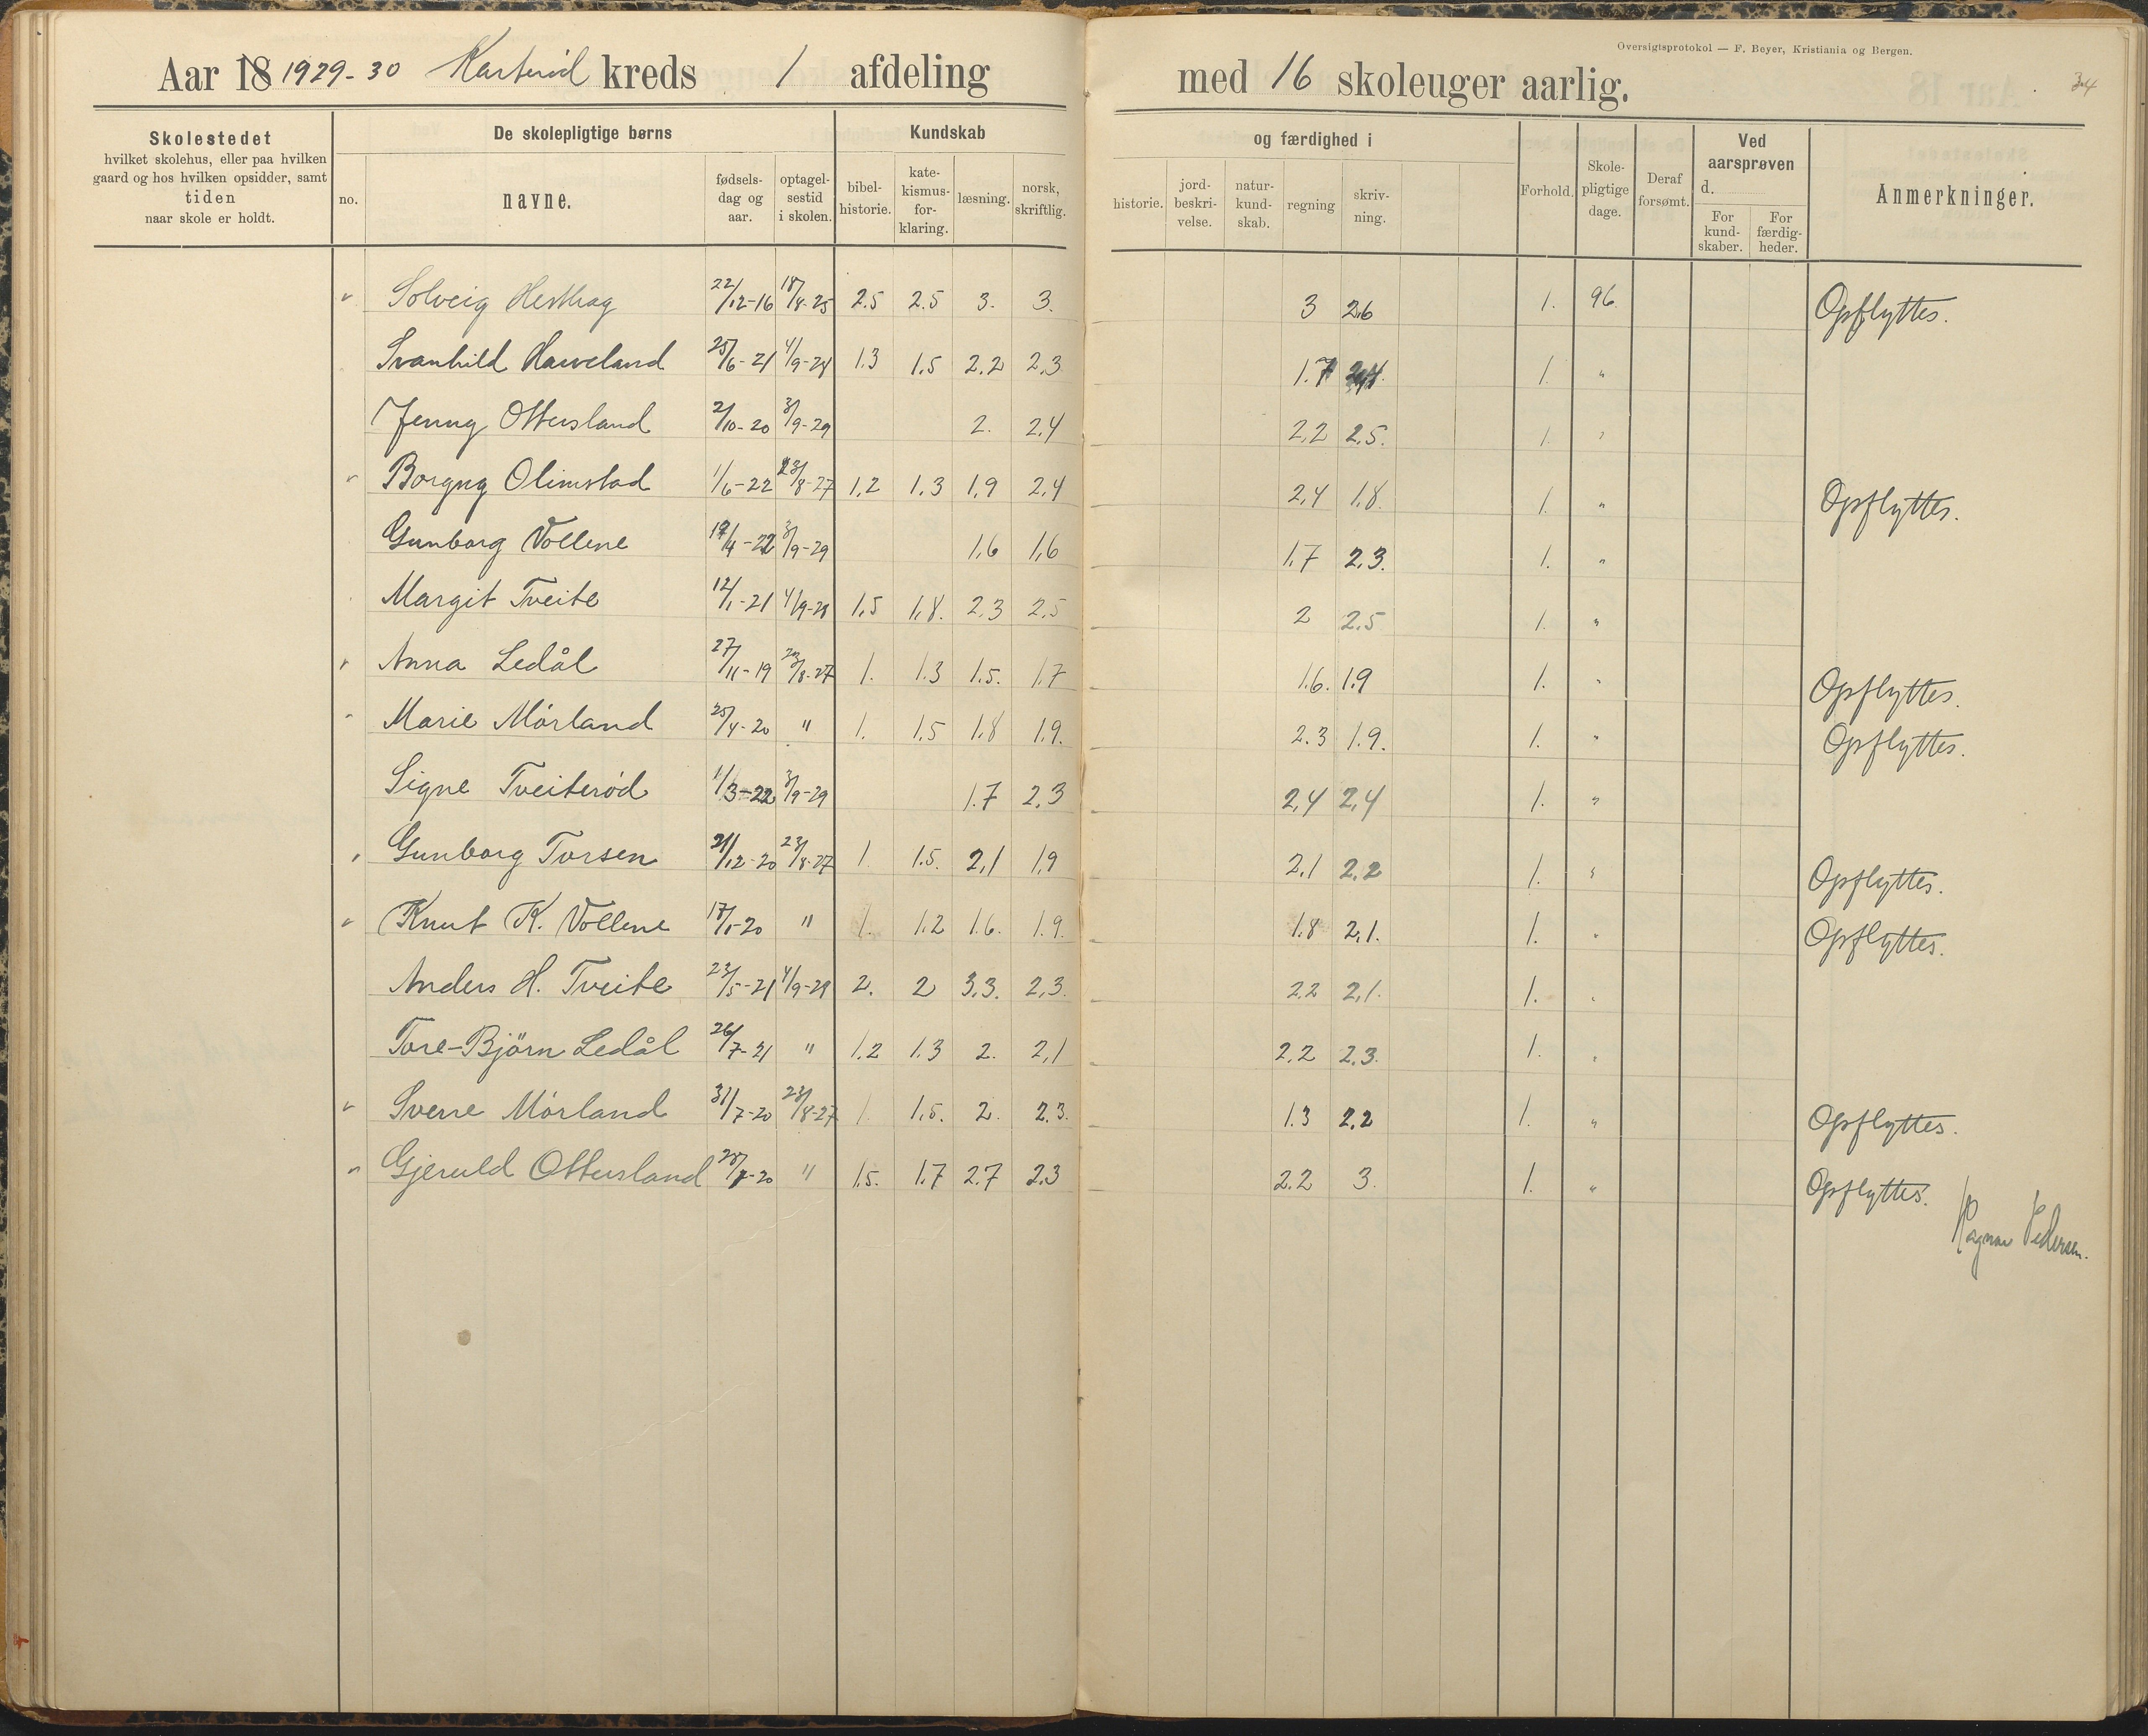 Oversigtsprotokol — F. Beyer, Kristiania og Bergen.
34
Aar 18 1929-30 Karterød kreds 1 afdeling med 16 skoleuger aarlig.
Skolestedet hvilket skolehus, eller paa hvilken gaard og hos hvilken opsidder, samt tiden naar skole er holdt.
De skolepligtige børns
no. navne. fødsels-dag og aar. optagel-sestid i skolen.
Kundskab og færdighed i
bibel-historie. kate-kismus-for-klaring. læsning. norsk, skriftlig. historie. jord-beskri-velse. natur-kund-skab. regning skriv-ning.
Forhold. Skole-pligtige dage. Deraf forsømt. Ved aarsprøven d. For kund-skaber. For færdig-heder. Anmerkninger.
Solveig Hesthag 22/12-16 18/8-25 2.5 2.5 3. 3. 3 2.6 1. 96 Opflyttes.
Svanhild Haveland 25/6-21 4/9-28 1.3 1.5 2.2 2.3 1.7 1. "
Jenny Ottersland 2/10-20 3/9-29 2. 2.4 2.2 2.5. 1. "
Borgny Olimstad 1/6-22 23/8-27 1.2 1.3 1.9 2.4 2.4 1.8. 1. " Opflyttes.
Gunborg Vollene 19/4-22 3/9-29 1.6 1.6 1.7 2.3. 1. "
Margit Tveite 12/1-21 4/9-28 1.5 1.8. 2.3 2.5 2 2.5 1. "
Anna Ledål 27/11-19 23/8-27 1. 1.3 1.5. 1.7 1.6. 1.9 1. " Opflyttes.
Marie Mørland 25/4-20 " 1. 1.5 1.8 1.9. 2.3 1.9. 1. " Opflyttes.
Signe Tveiterød 1/3-22 3/9-29 1.7 2.3 2.4 2.4 1. "
Gunborg Torsen 21/12-20 23/8-27 1. 1.5. 2.1 1.9 2.1 2.2 1. " Opflyttes.
Knut K. Vollene 17/1-20 " 1. 1.2 1.6. 1.9. 1.8 2.1. 1. " Opflyttes.
Anders H. Tveite 23/5-21 4/9-29 2. 2 3.3. 2.3. 2.2 2.1. 1. "
Tore-Bjørn Ledål 26/7-21 " 1.2 1.3 2. 2.1 2.2 2.3. 1. "
Sverre Mørland 31/7-20 23/8-27 1. 1.5. 2. 2.3. 1.3 2.2 1. " Opflyttes.
Gjeruld Ottersland 28/7-20 " 1.5. 1.7 2.7 2.3 2.2 3. 1. " Opflyttes.
Ragnar Pedersen.